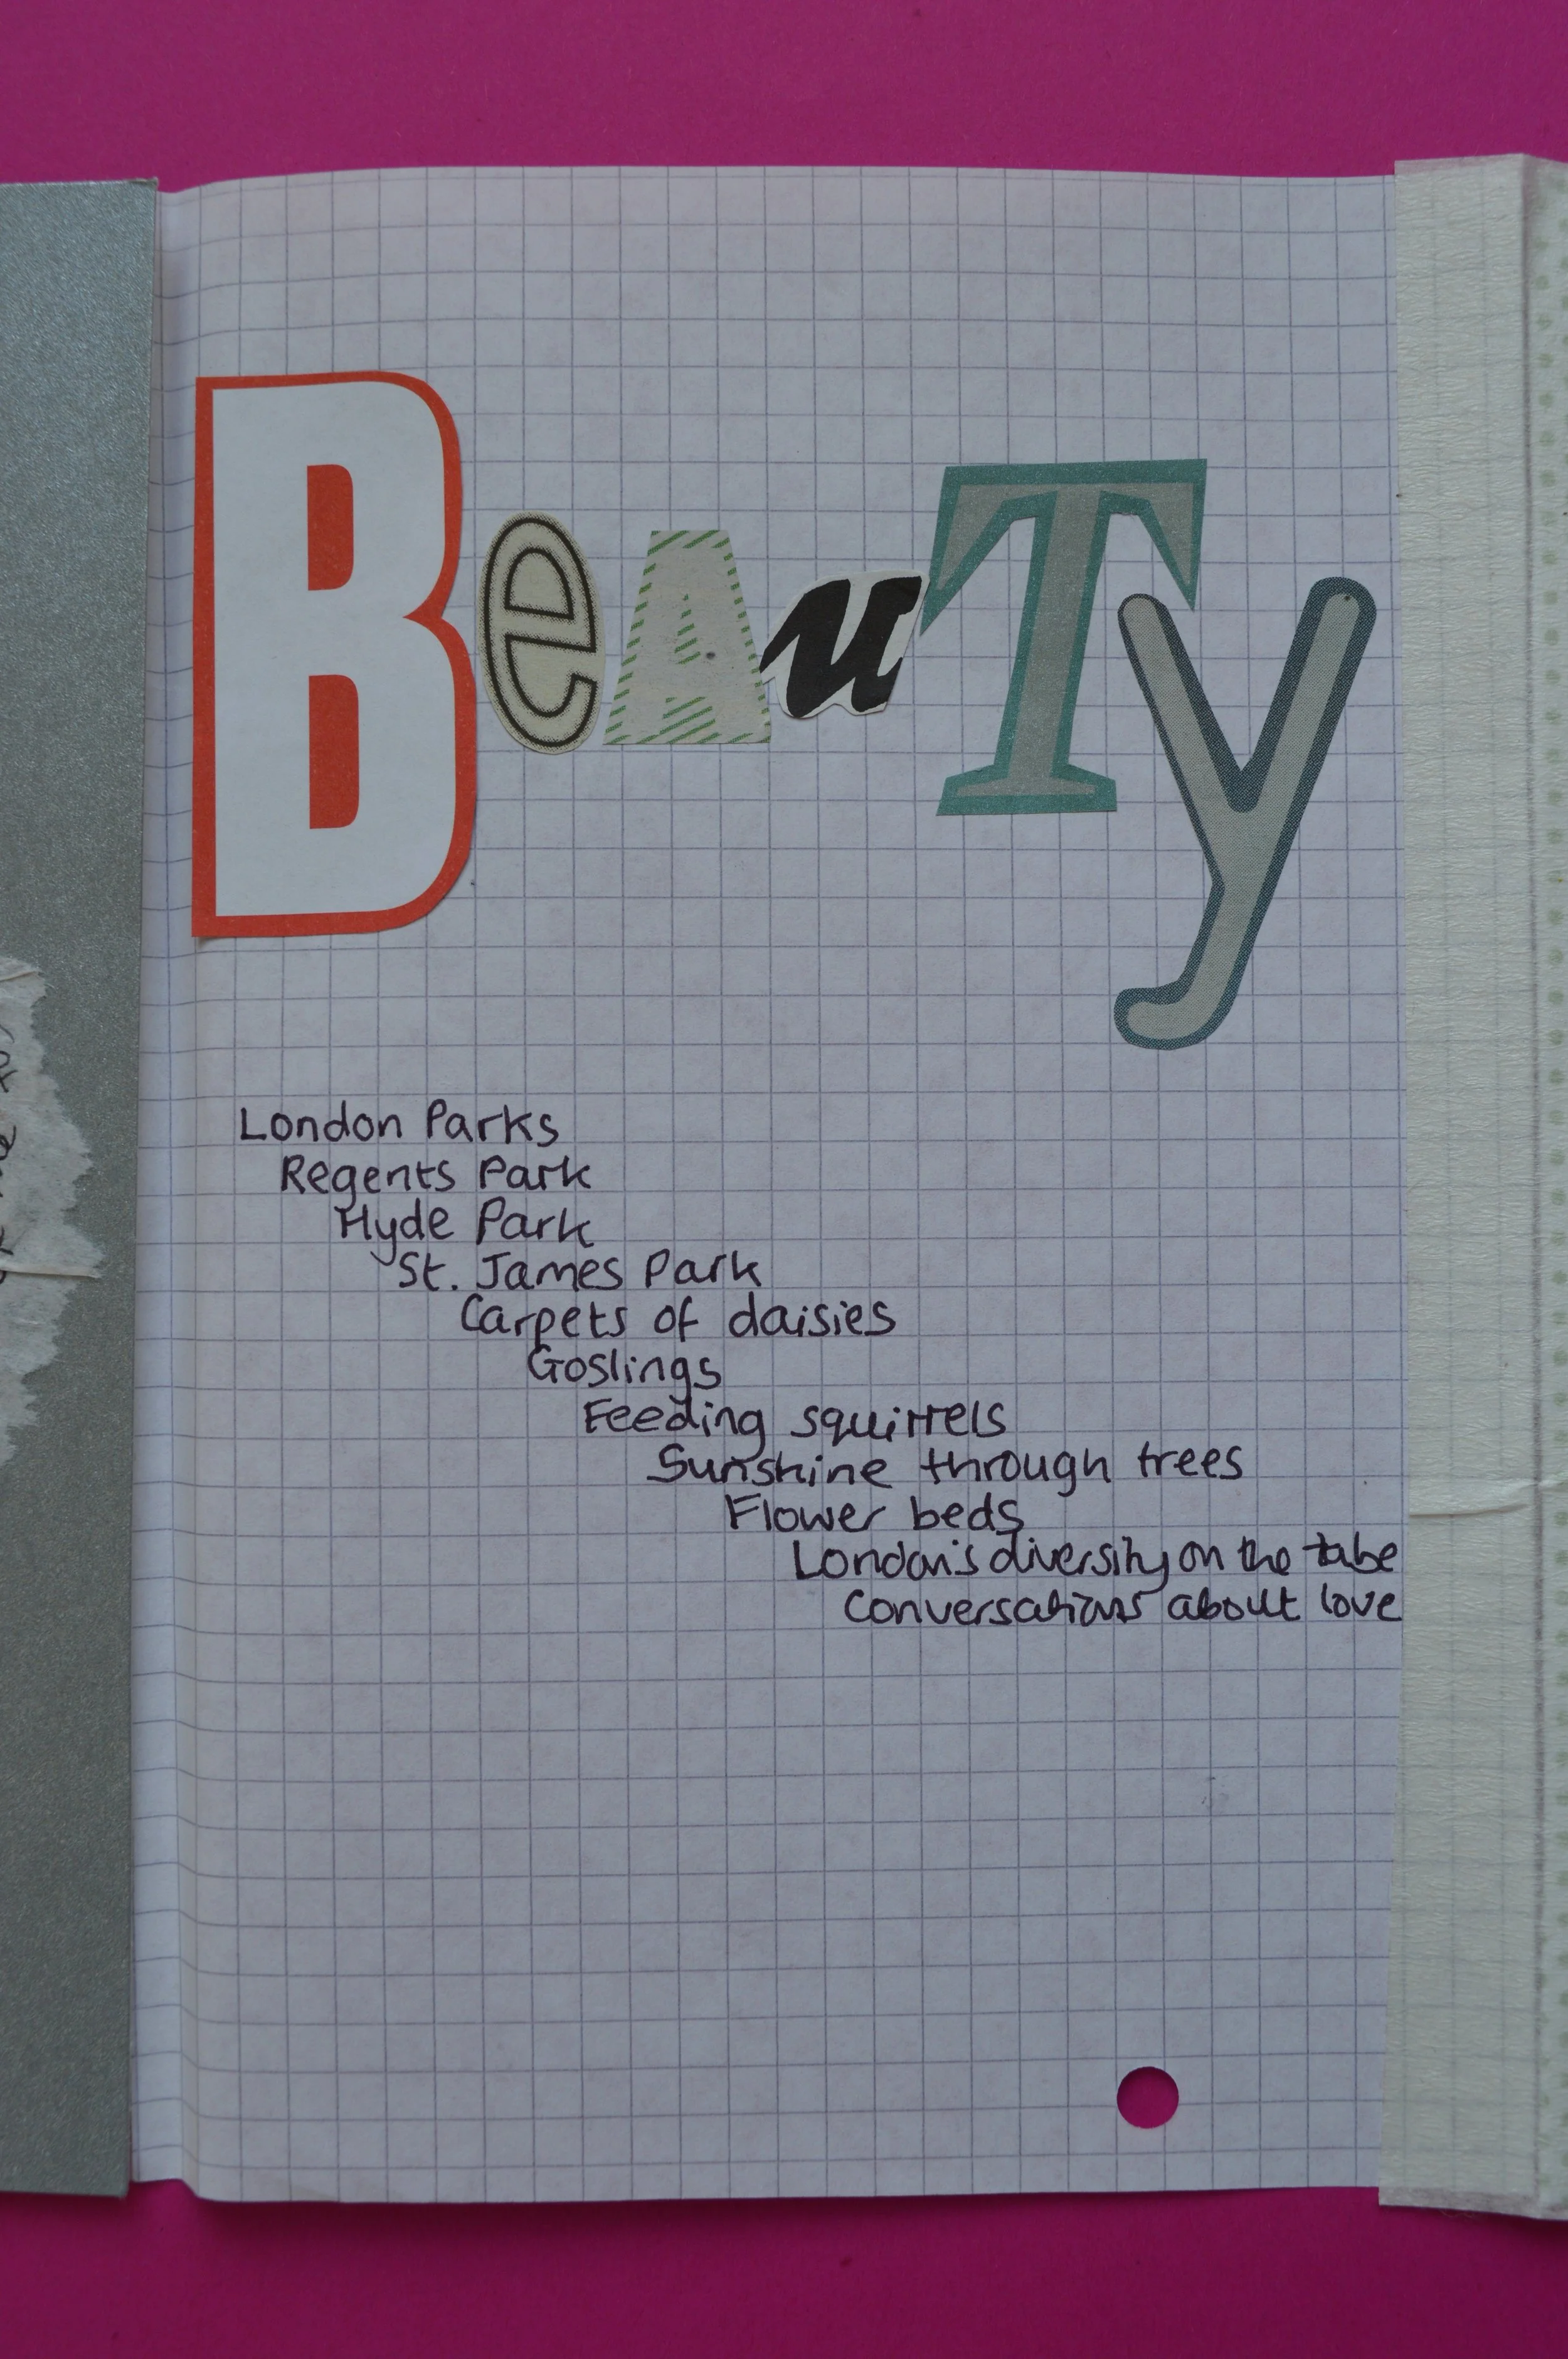 BeAuTy
London Parks
Regents Park
Hyde Park
St. James Park
Carpets of daisies
Goslings
Feeding squirrels
Sunshine through trees
Flower beds
London's diversity on the tube
Conversations about love